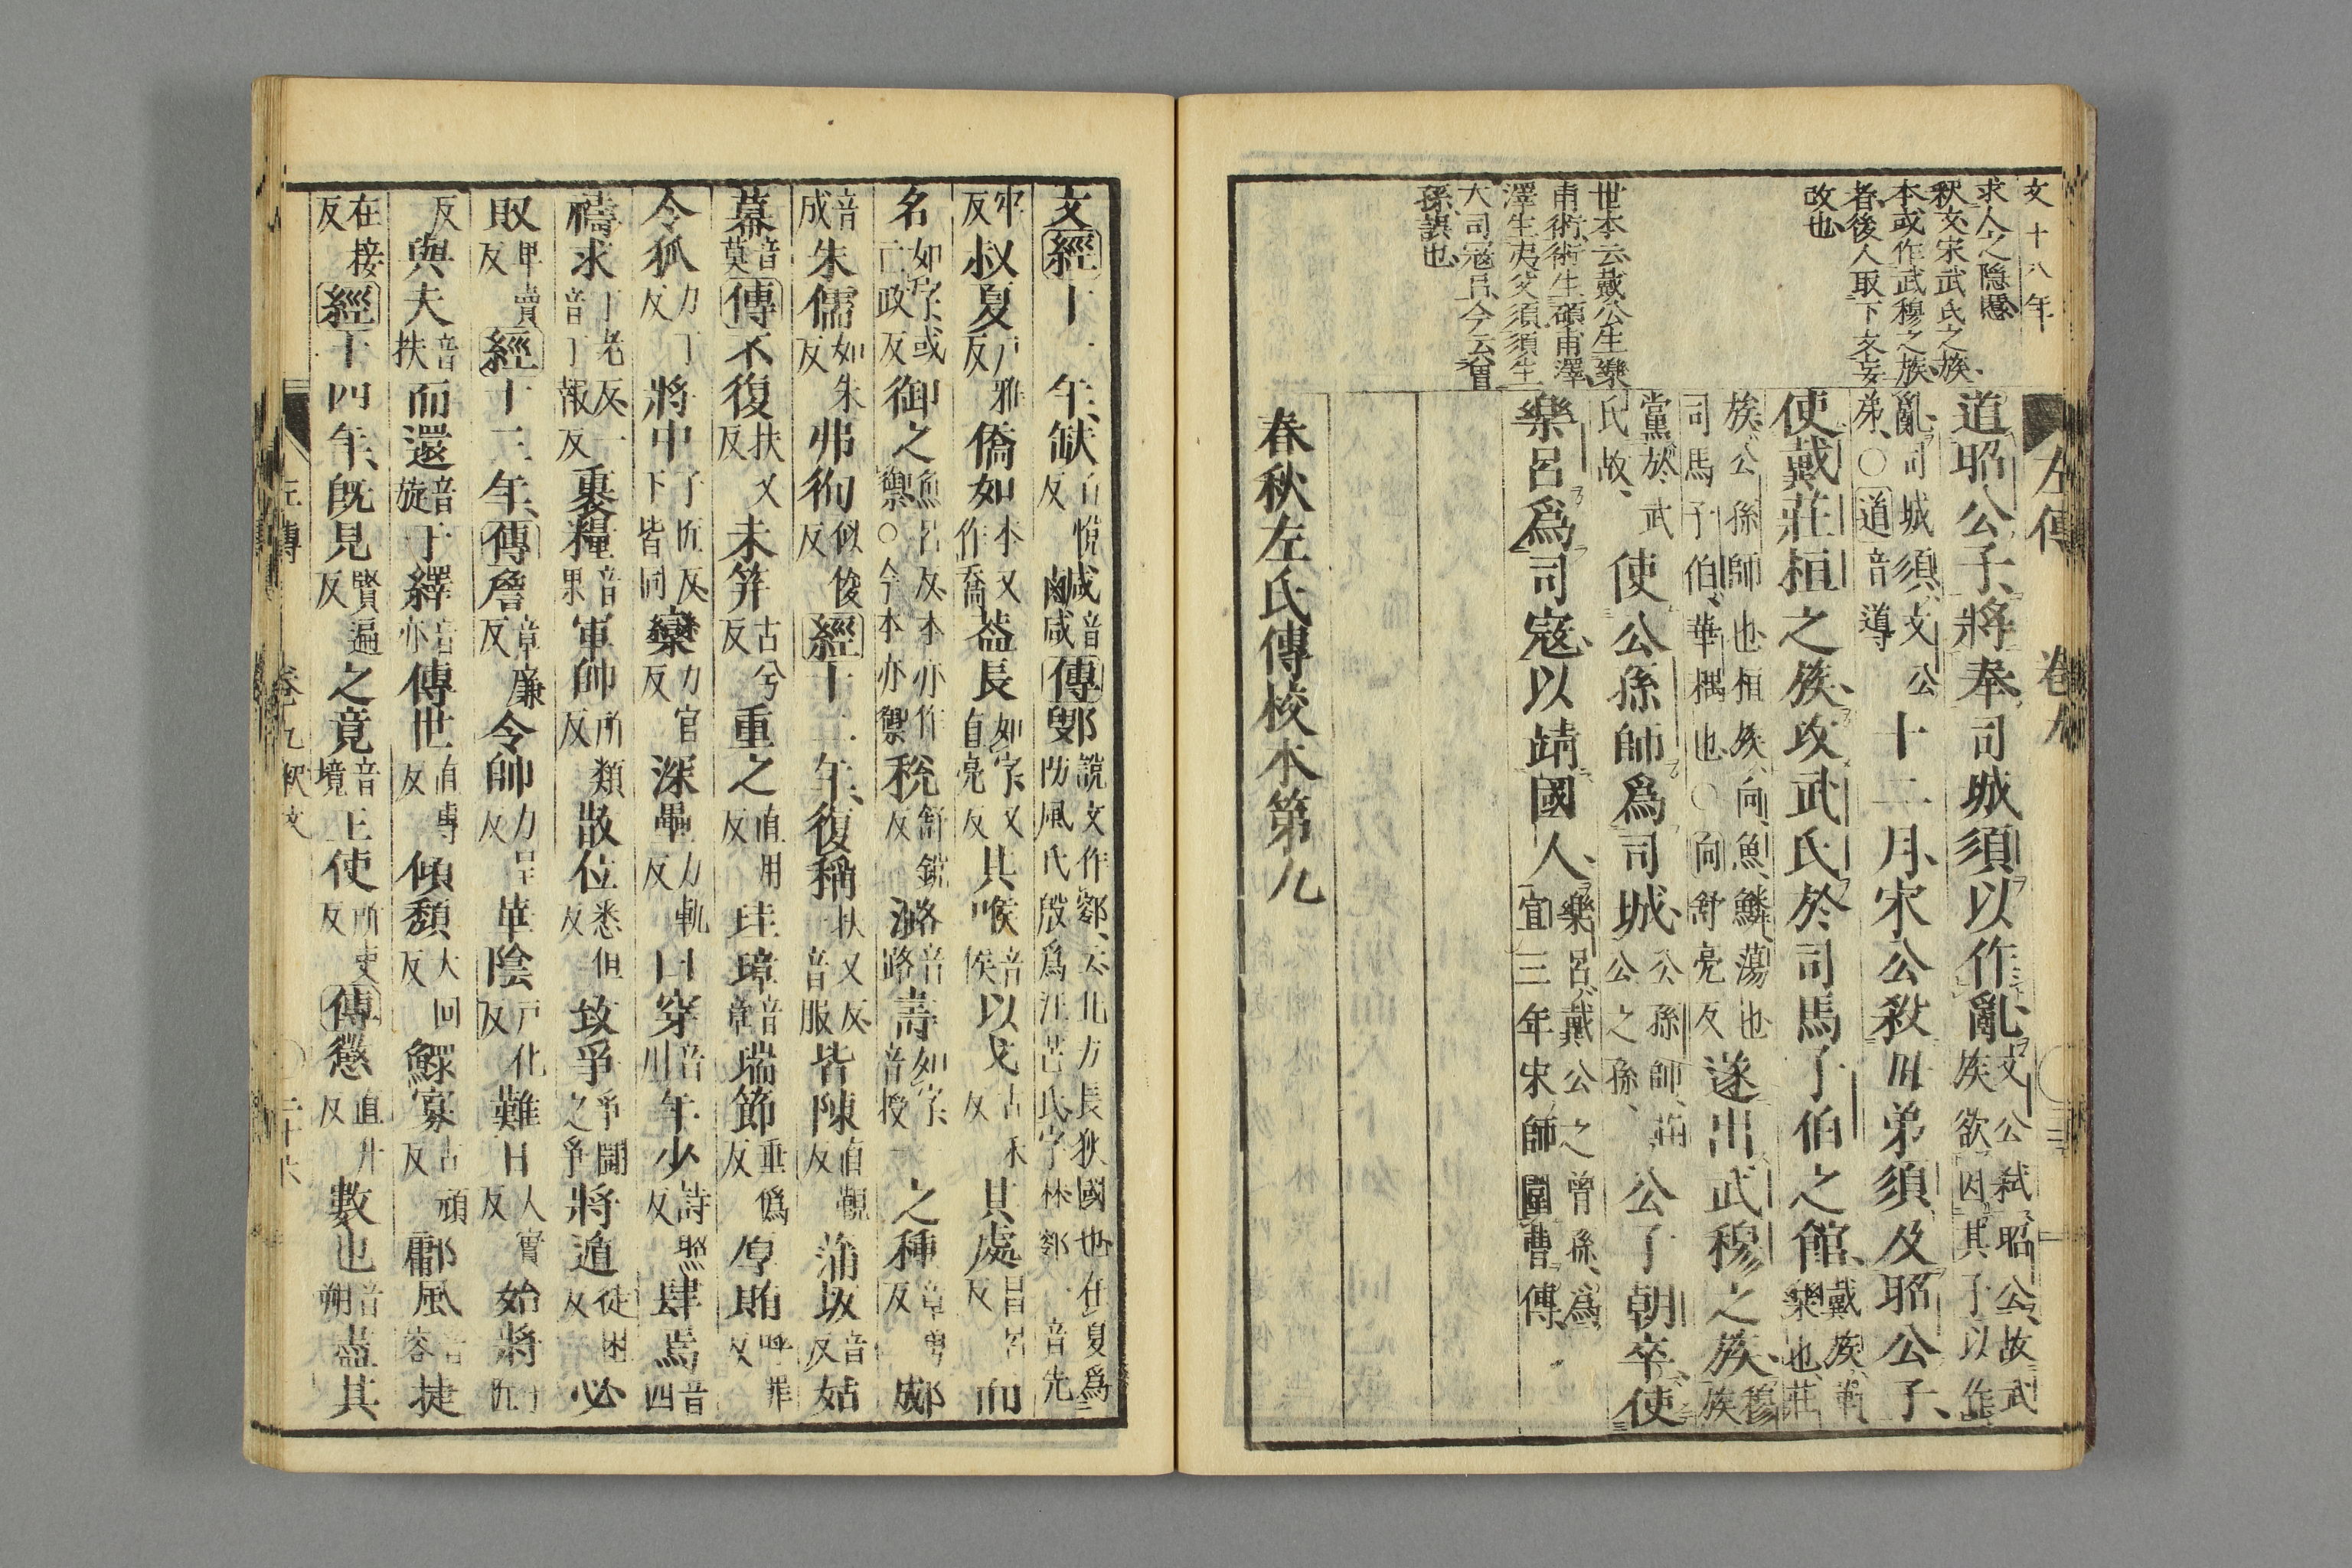 文十八年
求人之隠慝
釈文宋武氏之族
本或作武穆之族
者後人取下文妄
改也
世本云戴公生樂
甫術術生碩甫澤
澤生夷父須須生
大司寇呂今云曾
孫誤也
左傳 卷九
道昭公子、將奉司城須以作亂、
文公弑昭公、故武
族欲因其子以作
亂、司城須、文公
弟、○道音導
十二月、宋公殺母弟須及昭公子、
使戴莊桓之族、攻武氏於司馬子伯之館、
戴族、華
樂也、莊
族、公孫師也、桓族、向魚鱗蕩也
司馬子伯、華耦也、○向舒亮反
遂出武穆之族、
穆
族
黨於武
氏故、
使公孫師爲司城、
公孫師、莊
公之孫、
公子朝卒、使
樂呂爲司寇、以靖國人、
樂呂、戴公之曾孫、爲
宣三年宋師圍曹傳、
春秋左氏傳校本第九
文經十一年、缺
丘悅
反
鹹
音
咸
傳鄋
說文作鄋、云北方長狄國也、在夏爲
防風氏殷爲汪芒氏字林鄋一音先
牢
反
叔夏
戶雅
反
僑如
本又
作喬
葢長
如字又
直亮反
其喉
音
侯
以戈
古禾
反
其處
昌呂
反
而
名
如字或
亡政反
御之
魚呂反本亦作
禦○今本亦禦
稅
舒銳
反
潞
音
路
壽
如字一
音授
之種
章勇
反
郕
音
成
朱儒
如朱
反
弗徇
似俊
反
經十二年、復稱
扶又反
音服
皆陳
直覲
反
蒲坂
音
反
姑
幕
音
莫
傳不復
扶又
反
未笄
古兮
反
重之
直用
反
珪璋
音
章
瑞節
垂僞
反
厚賄
呼罪
反
令狐
力丁
反
將中
子匠反
下皆同
欒
力官
反
深壘
力軌
反
曰穿
音
川
年少
詩照
反
肆焉
音
四
禱求
丁老反一
音丁報反
裹糧
音
果
軍帥
所類
反
散位
悉但
反
致爭
爭鬪
之爭
將遁
徒困
反
必
敗
卑賣
反
經十三年、傳詹
章廉
反
令帥
力呈
反
華陰
戶化
反
難日
人實
反
始將
子
匠
反
與夫
音
扶
而還
音
旋
于繹
音
亦
傳世
直專
反
傾頹
大回
反
鰥寡
古頑
反
鄘風
音
容
捷
在接
反
經十四年、既見
賢遍
反
之竟
音
境
王使
所吏
反
傳愆
直升
反
數也
音
朔
盡其
左傳 卷九釈文 二十六